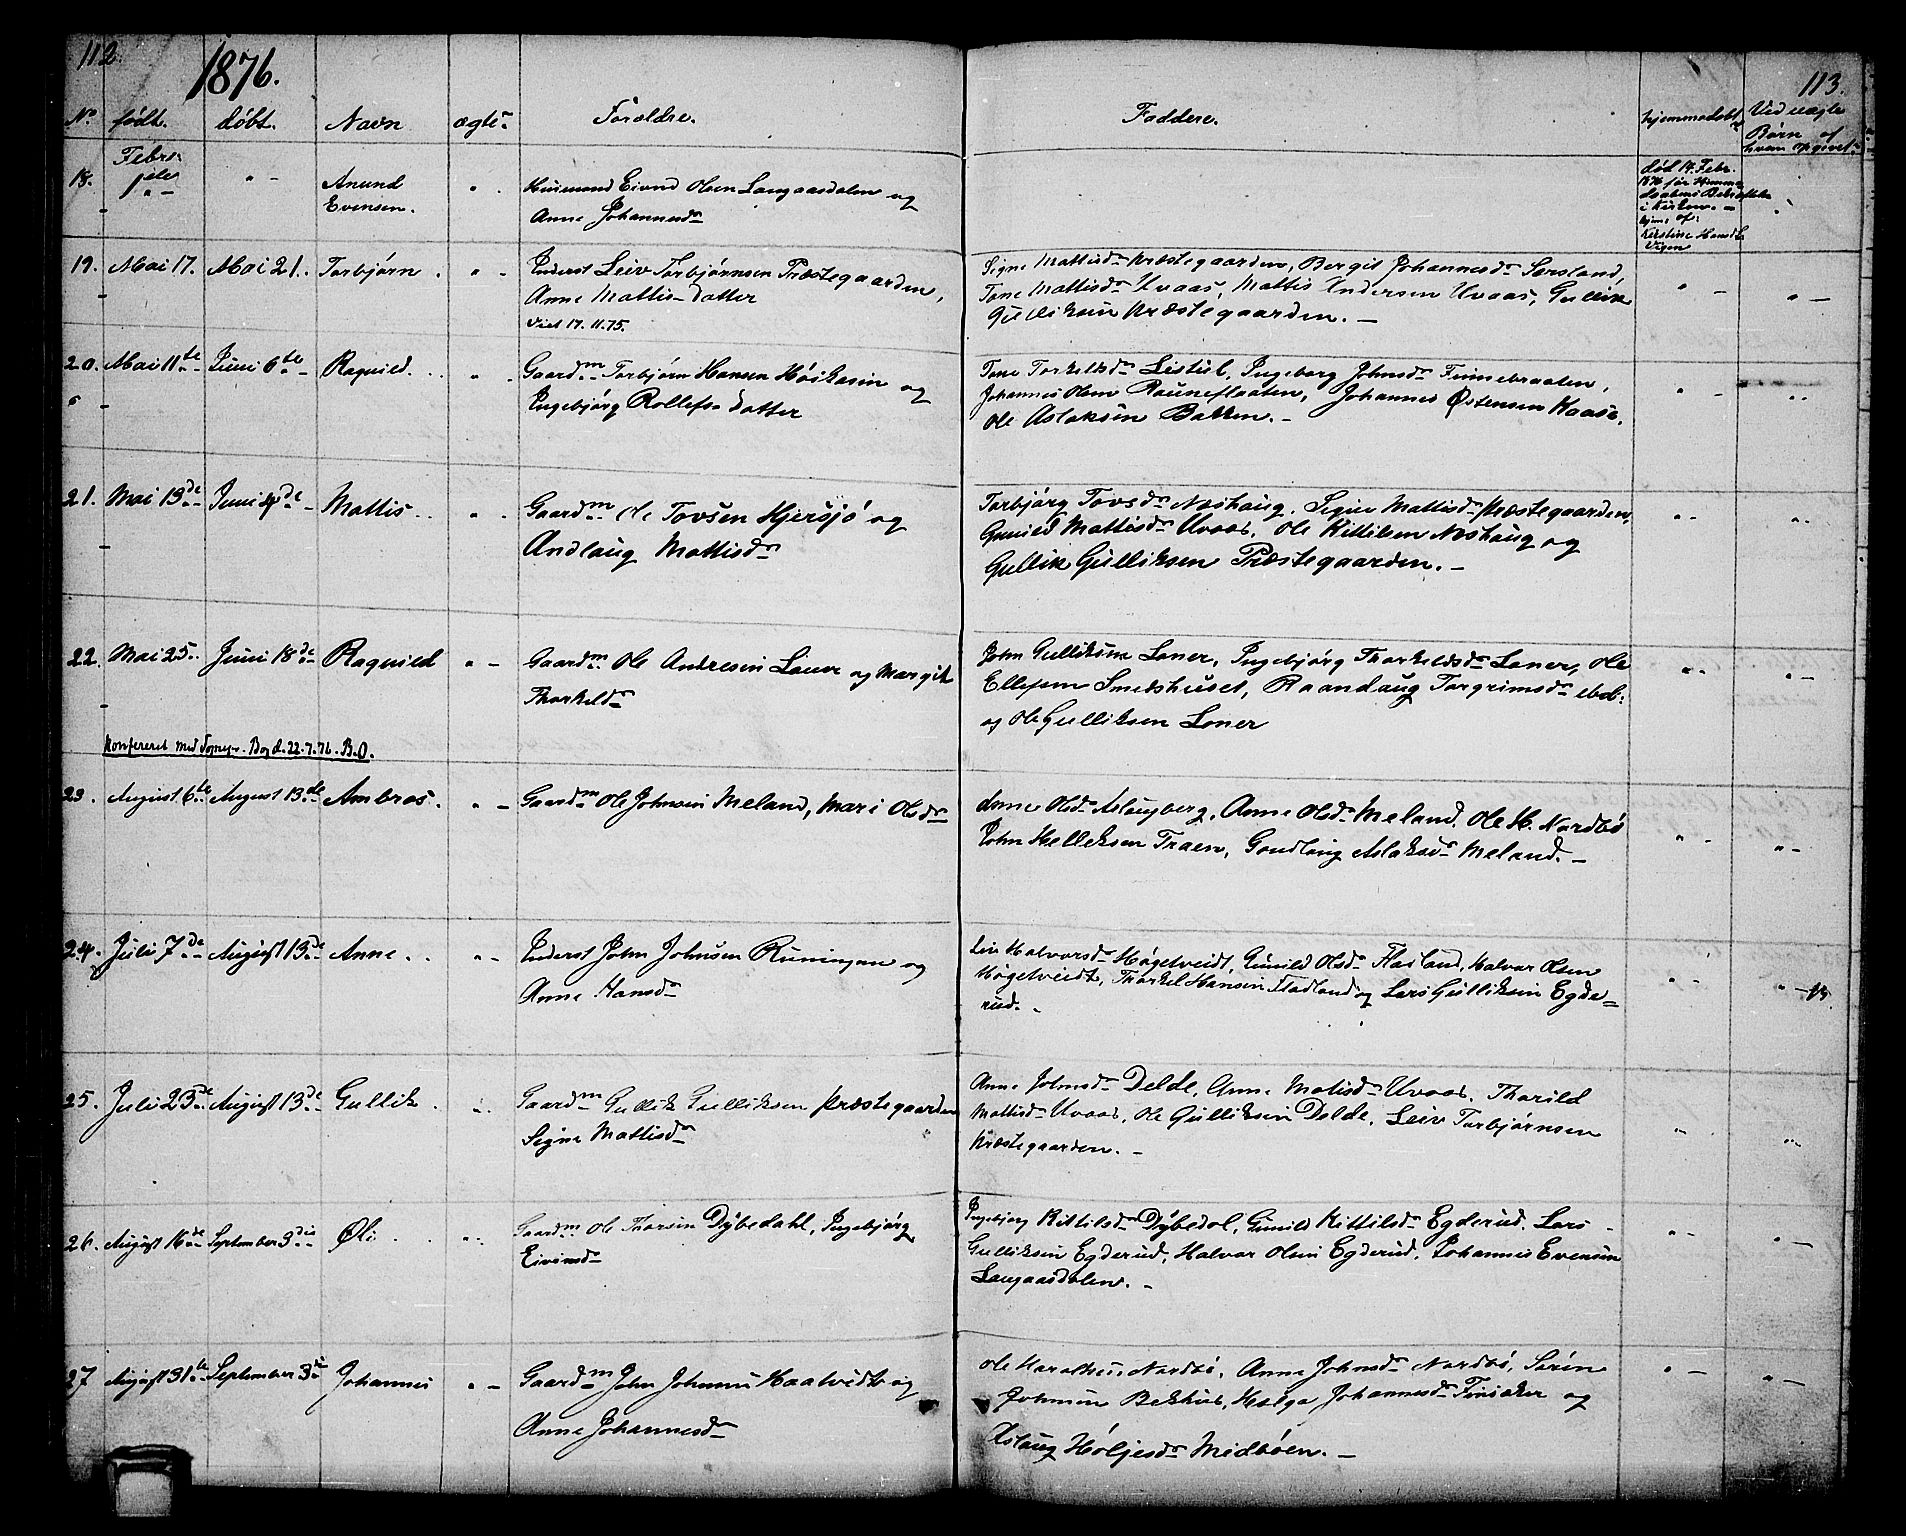 112.
1876.
113.
No født. døbt. Navn ægte Forældre. Faddere. hjemmedøbt Ved uægte
Børn af
hvem opgivet
18. Febr. 1ste " - Anund
Evensen. " Husmand Eivind Olsen Langaasdalen og
Anne Johannesd.
død 14. Febr.
1876 før Hjemme
daabens Bekræftelse
i Kirken. -
hjem. af:
Kirstine Hansd.
19. Mai 17. Mai 21. Torbjørn. " - Inderst Leiv Torbjørnsen Præstegaarden,
Anne Mattis-Datter
viet 17.11.75.
Signe Mattisd. Præstegaarden, Bergit Johannesd. Sørsland,
Tone Mattisd. Uvaas, Mattis Andersen Uvaas, Gullik
Gulliksen Præstegaarden. - " - " -
20. Mai 11te Juni 6te Ragnild. " . Gaardm. Torbjørn Hansen Høikasin og
Ingebjørg Rollefs Datter
Tone Torkelsd. Listul, Ingeborg Johnsd. Finnebraaten,
Johannes Olsen Rauneflaaten, Johannes Østensen Kaasa,
Ole Aslaksen Bakken. -
21. Mai 13de Juni de Mattis. " . Gaardm. Ole Tovsen Hjersjø og
Andlaug Mattisd.
Torbjørg Tovsd. Noshaug, Signe Mattisd. Præstegaarden,
Gunild Mattisd. Uvaas, Ole Kittilsen Noshaug og
Gullik Gulliksen Præstegaarden. -
22. Mai 25. Juni 18de Ragnild " - Gaardm. Ole Andresen Løner og Margit
Thorkeld.
John Gulliksen Loner, Ingebjørg Thorkeldsd. Loner, Ole
Ellefsen Smedshuset, Raandaug Torgrimsd. ibd:
og Ole Gulliksen Loner
Konfereret med Sognepr. Bog d. 22.7.76. B.O.
23. August 6te August 13de Ambros. " - Gaardm. Ole Johnsen Meland, Mari Olsd.
Anne Olsd. Aslaugberg, Anne Olsd. Meland, Ole H. Nordbø
John Helleksen Traen, Gondlaug Aslaksd. Meland. -
24. Juli 7de August 13de Anne. " - Inderst John Johnsen Runingen og
Anne Hansd.
Liv Halvorsd. Høgetveidt, Gunild Olsd. Flatland, Halvor Olsen
Høgetveidt, Thorkel Hansen Flatland og Lars Gulliksen Egde=
rud. -
25. Juli 23de August 13de Gullik. " . Gaardm. Gullik Gulliksen Præstegaarden
Signe Mattisd.
Anne Johnsd. Delde, Anne Matisd. Uvaas, Thorild
Mattisd. Uvaas, Ole Gulliksen Delde, Leiv Torbjørnsen
Præstegaarden. -
26. August 16de September 3die Øli. " . Gaardm. Ole Thorsen Dybedahl, Ingebjørg
Eivindsd.
Ingebjørg Kittilsd. Dybedal, Gunild Kittilsd. Egderud, Lars
Gulliksen Egderud, Halvor Olsen Egderud, Johannes Evensen
Langaasdalen. -
27 August 31te September 3die Johannes " - Gaardm. John Johnsen Haatvidt og
Anne Johannesd.
Ole Nordbø, Anne Johnsd. Nordbø, Søren
Johnsen Bekhus, Helga Johannesd. og
Aslaug Høljesd. Midbøen. -